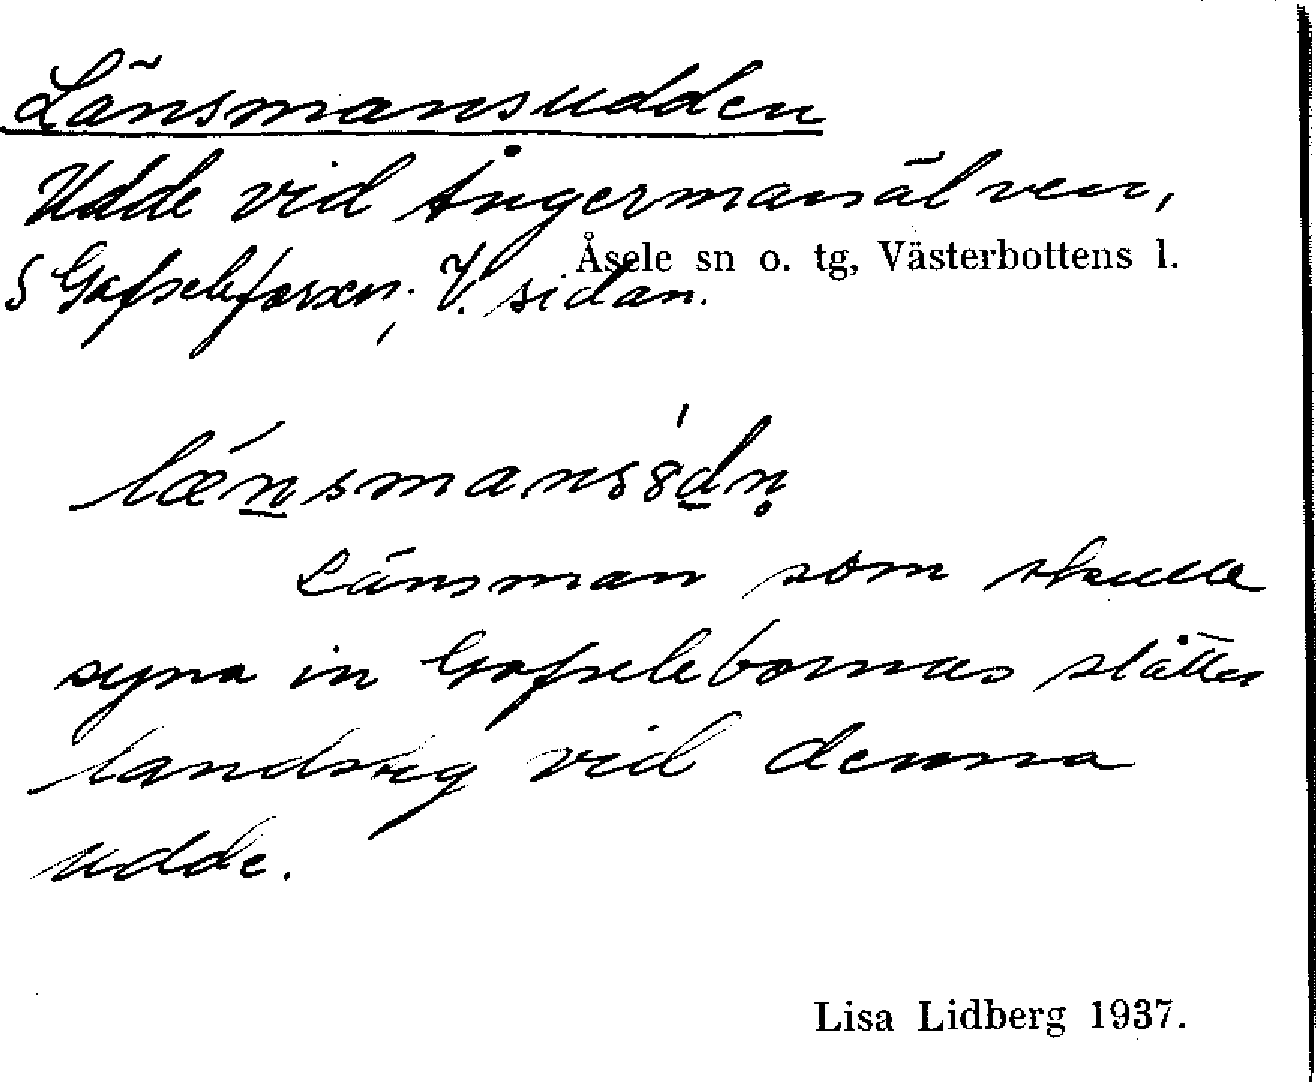 Länsmansudden
Udde vid Ångermanälven,
Åsele sn o. tg, Västerbottens l.
S Gafseleforsen; V. sidan.
Länsman som skulle
syna in Gafselebornas slåtter
landsteg vid denna
udde.
Lisa Lidberg 1937.